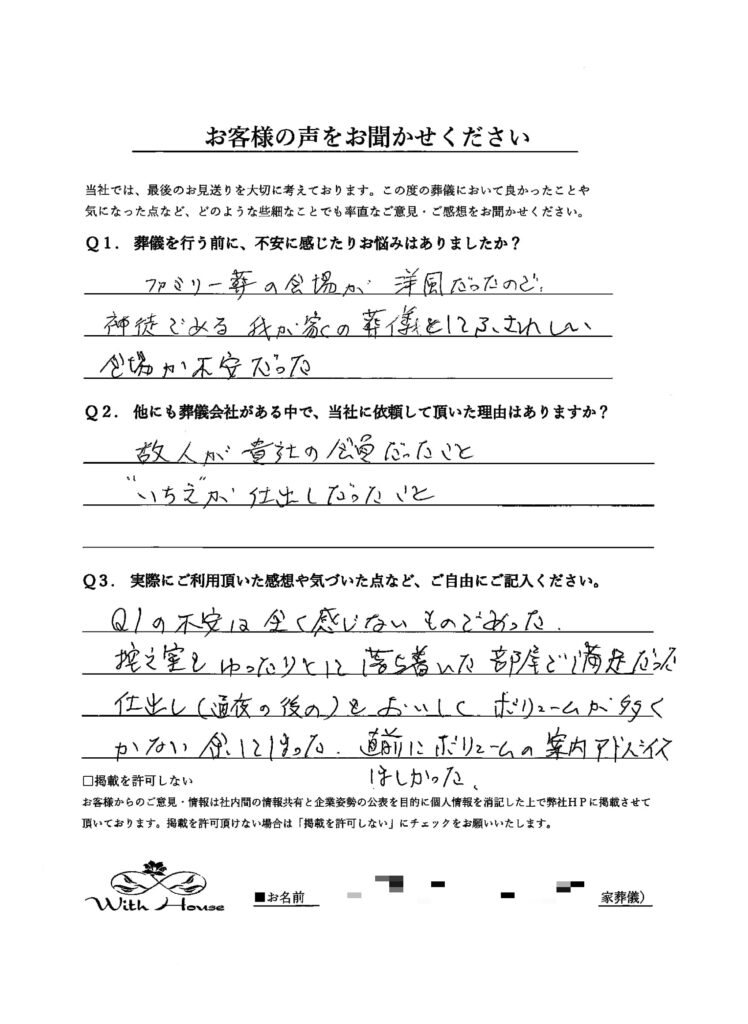 お客様の声をお聞かせください
当社では、最後のお見送りを大切に考えております。この度の葬儀において良かったことや
気になった点など、どのような些細なことでも率直なご意見・ご感想をお聞かせください。
Q1. 葬儀を行う前に、不安に感じたりお悩みはありましたか？
ファミリー葬の会場が 洋風だったので、
神徒である 我が家の葬儀としてふさわしい
会場か不安だった
Q2. 他にも葬儀会社がある中で、当社に依頼して頂いた理由はありますか？
故人が貴社の会員だったこと
"いちえ"が仕出しだったこと
Q3. 実際にご利用頂いた感想や気づいた点など、ご自由にご記入ください。
Q1の不安は全く感じないものであった.
控え室もゆったりとして落ち着いた部屋で満足だった
仕出し(通夜の後の)もおいしく ボリュームが多く
かなり余してしまった. 直前にボリュームの案内アドバイス
ほしかった、
□掲載を許可しない
お客様からのご意見・情報は社内間の情報共有と企業姿勢の公表を目的に個人情報を消記した上で弊社HPに掲載させて
頂いております。掲載を許可頂けない場合は「掲載を許可しない」にチェックをお願いいたします。
With House
■お名前 家葬儀）